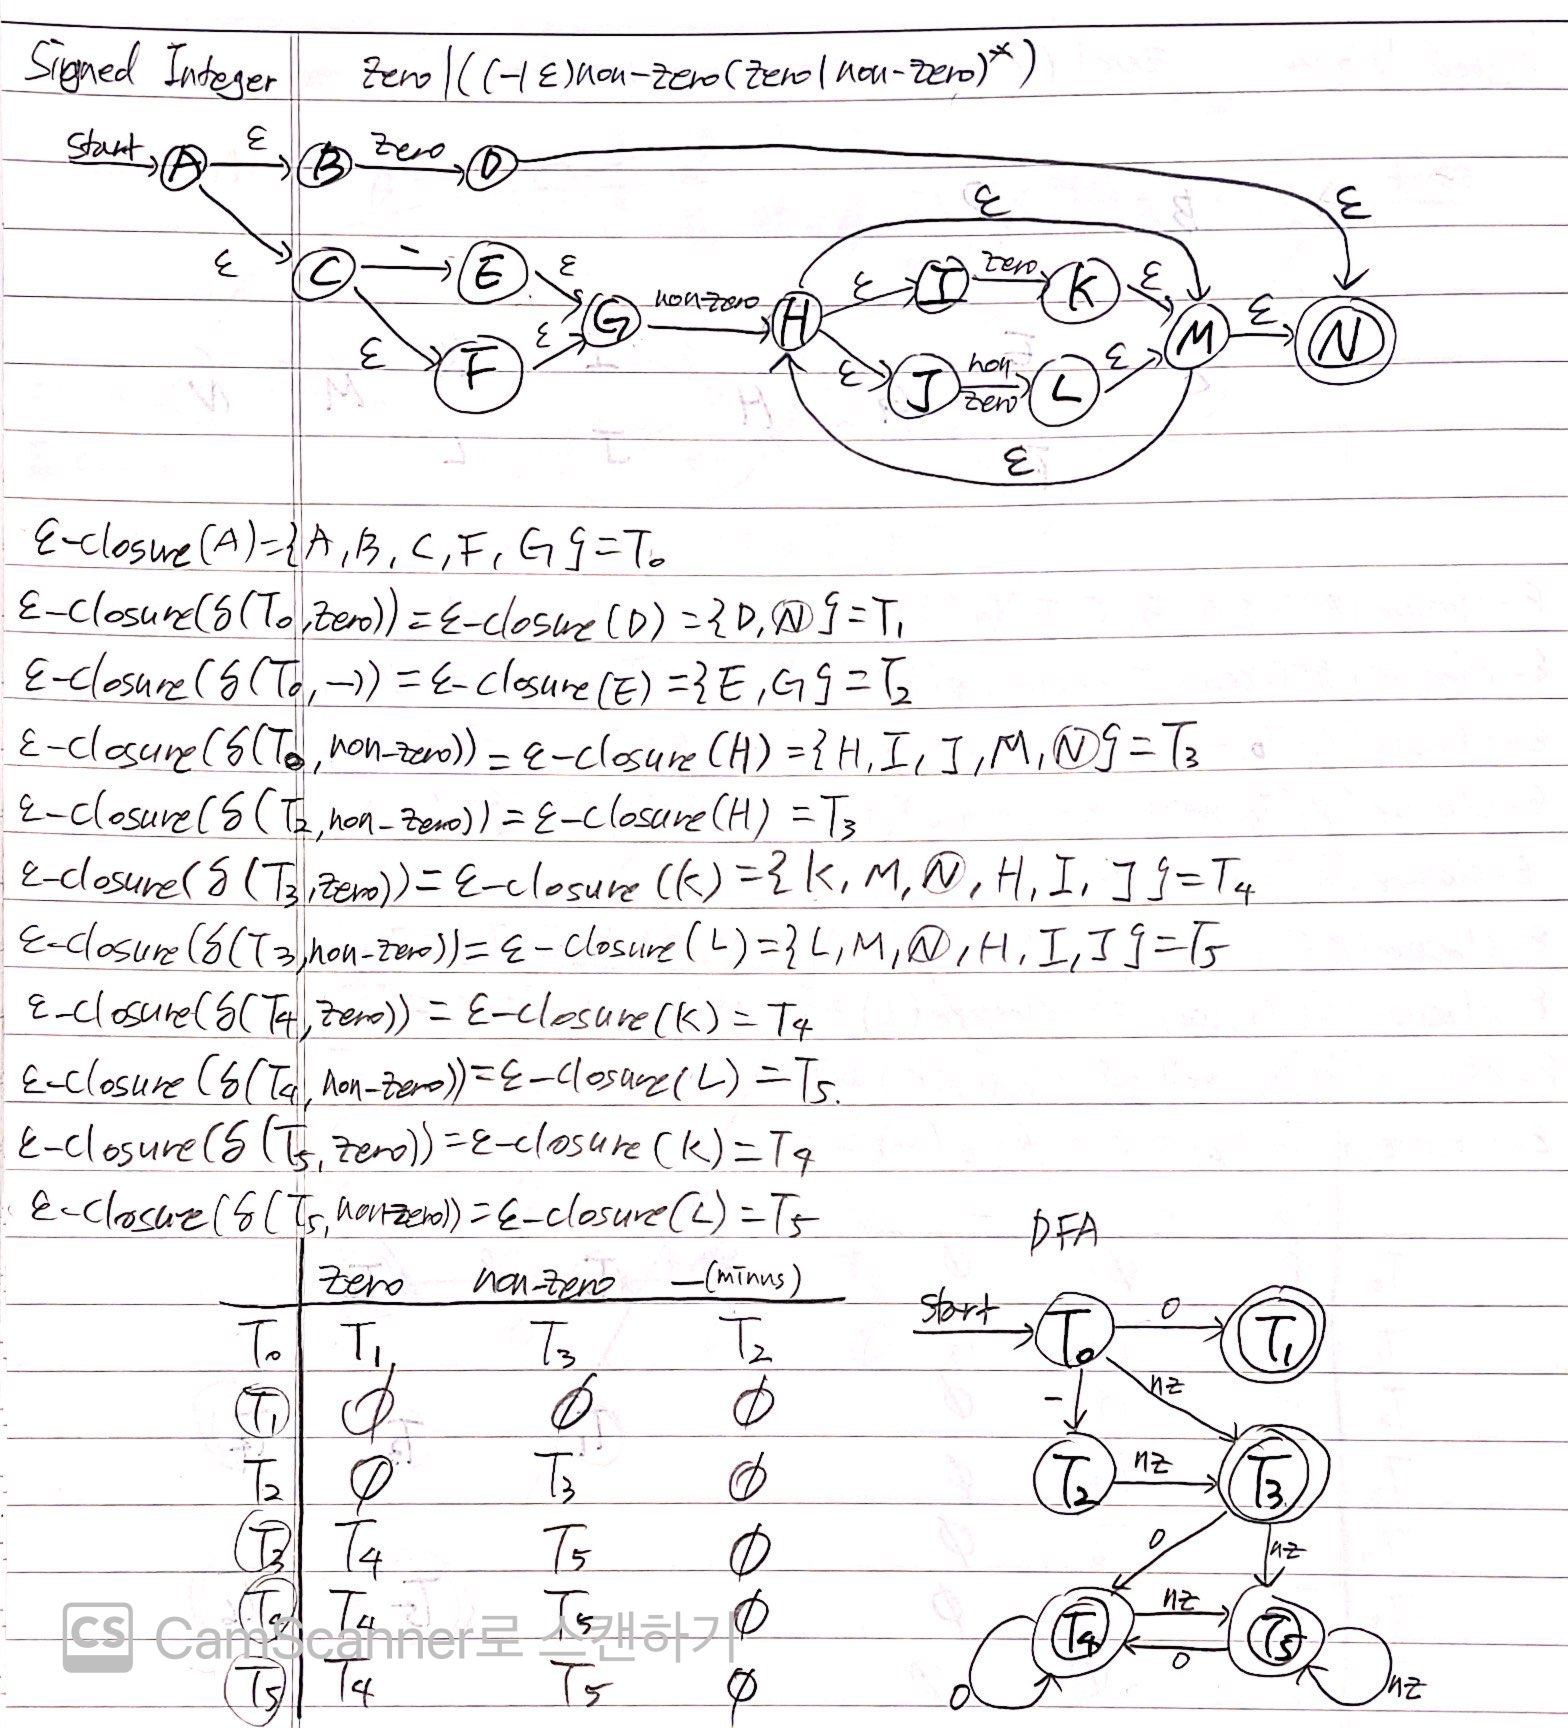 Signed Integer zero|((-|ε)non-zero(zero|non-zero)*)
start A ε B zero D
ε
ε C - E ε G non-zero H ε I zero K ε M ε N
ε
ε F ε ε J non zero L ε
ε
ε-closure(A)={A,B,C,F,G}=T₀
ε-closure(δ(T₀,zero))=ε-closure(D)={D,N}=T₁
ε-closure(δ(T₀,-))=ε-closure(E)={E,G}=T₂
ε-closure(δ(T₀,non-zero))=ε-closure(H)={H,I,J,M,N}=T₃
ε-closure(δ(T₂,non-zero))=ε-closure(H)=T₃
ε-closure(δ(T₃,zero))=ε-closure(K)={K,M,N,H,I,J}=T₄
ε-closure(δ(T₃,non-zero))=ε-closure(L)={L,M,N,H,I,J}=T₅
ε-closure(δ(T₄,zero))=ε-closure(K)=T₄
ε-closure(δ(T₄,non-zero))=ε-closure(L)=T₅.
ε-closure(δ(T₅,zero))=ε-closure(K)=T₄
ε-closure(δ(T₅,non-zero))=ε-closure(L)=T₅
zero non-zero -(minus)
T₀ T₁ T₃ T₂
T₁ ∅ ∅ ∅
T₂ ∅ T₃ ∅
T₃ T₄ T₅ ∅
T₄ T₄ T₅ ∅
T₅ T₄ T₅ ∅
DFA
start T₀ 0 T₁
- nz
T₂ nz T₃
0 nz
T₄ nz T₅
0
0 nz
CS CamScanner로 스캔하기